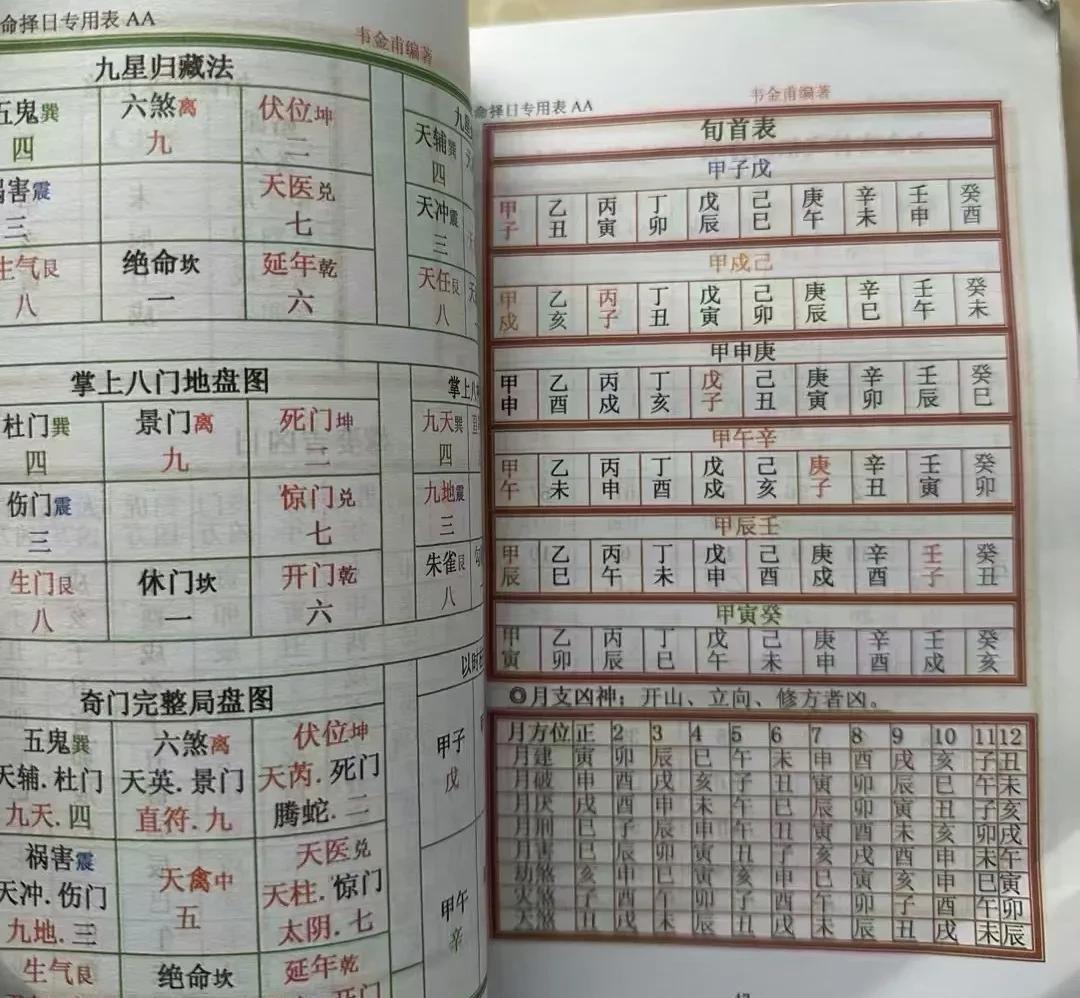 命择日专用表 AA
韦金甫编著
九星归藏法
五鬼巽 六煞离 伏位坤
四 九 二
祸害震 天医兑
三 七
生气艮 绝命坎 延年乾
八 一 六
掌上八门地盘图
杜门巽 景门离 死门坤
四 九 二
伤门震 惊门兑
三 七
生门艮 休门坎 开门乾
八 一 六
奇门完整局盘图
五鬼巽 六煞离 伏位坤
天辅.杜门 天英.景门 天芮.死门
九天.四 直符.九 腾蛇.二
祸害震 天禽中 天医兑
天冲.伤门 五 天柱.惊门
九地.三 太阴.七
生气艮 绝命坎 延年乾
九星
天辅巽
四
天冲震
三
天任艮
八
掌上八
九天巽
四
九地震
三
朱雀艮
八
以时
甲子
戊
甲午
辛
命择日专用表 AA
韦金甫编著
旬首表
甲子戊
甲子 乙丑 丙寅 丁卯 戊辰 己巳 庚午 辛未 壬申 癸酉
甲戍己
甲戍 乙亥 丙子 丁丑 戊寅 己卯 庚辰 辛巳 壬午 癸未
甲申庚
甲申 乙酉 丙戍 丁亥 戊子 己丑 庚寅 辛卯 壬辰 癸巳
甲午辛
甲午 乙未 丙申 丁酉 戊戍 己亥 庚子 辛丑 壬寅 癸卯
甲辰壬
甲辰 乙巳 丙午 丁未 戊申 己酉 庚戍 辛酉 壬子 癸丑
甲寅癸
甲寅 乙卯 丙辰 丁巳 戊午 己未 庚申 辛酉 壬戍 癸亥
◎月支凶神：开山、立向、修方者凶。
月方位 正 2 3 4 5 6 7 8 9 10 11 12
月建 寅 卯 辰 巳 午 未 申 酉 戌 亥 子 丑
月破 申 酉 戌 亥 子 丑 寅 卯 辰 巳 午 未
月厌 戌 酉 申 未 午 巳 辰 卯 寅 丑 子 亥
月刑 巳 子 辰 申 午 丑 寅 酉 未 亥 卯 戌
月害 巳 辰 卯 寅 丑 子 亥 戌 酉 申 未 午
劫煞 亥 申 巳 寅 亥 申 巳 寅 亥 申 巳 寅
灾煞 子 酉 午 卯 子 酉 午 卯 子 酉 午 卯
天煞 丑 戌 未 辰 丑 戌 未 辰 丑 戌 未 辰